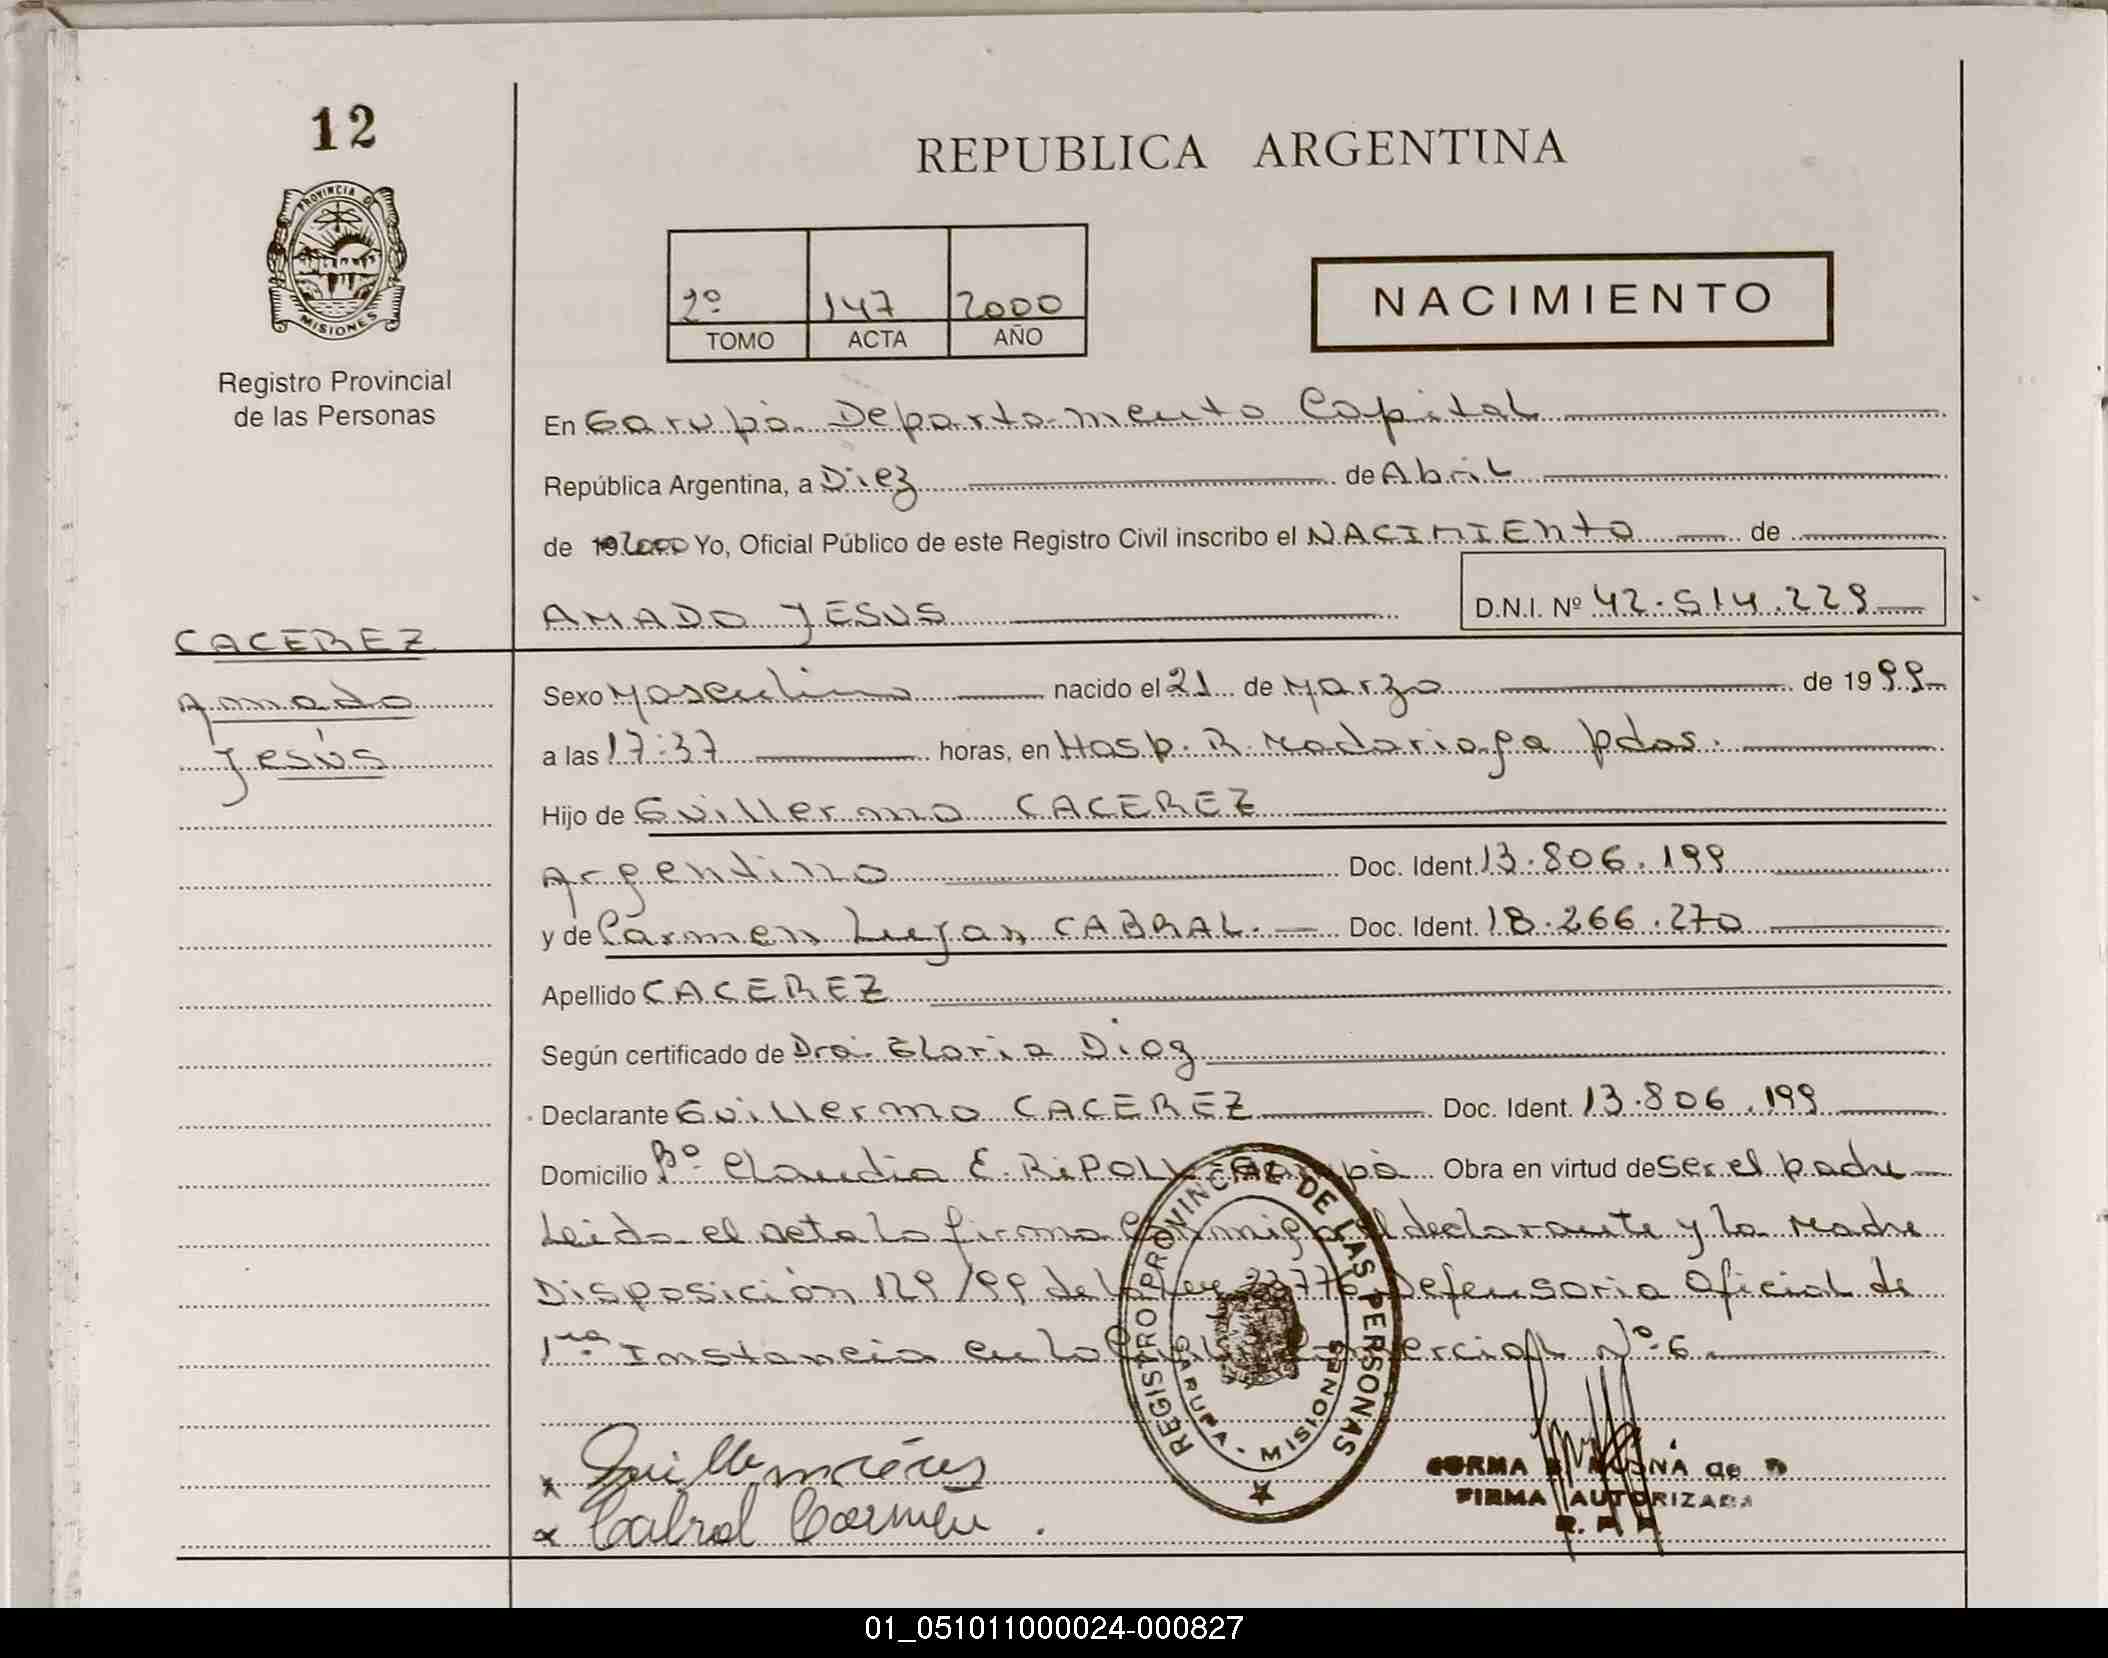 12
REPUBLICA ARGENTINA
PROVINCIA DE
MISIONES
Registro Provincial
de las Personas
2º 147 2000
TOMO ACTA AÑO
NACIMIENTO
En Garupà Departamento Capital
República Argentina, a Diez de Abril
de 192000 Yo, Oficial Público de este Registro Civil inscribo el NACIMIENTO de
AMADO JESUS D.N.I. Nº 42.514.229
CACEREZ
Amado
Jesús
Sexo Masculino nacido el 21 de Marzo de 1999
a las 17:37 horas, en Hosp. R. Madariaga Pdas.
Hijo de Guillermo CACEREZ
Argentino Doc. Ident. 13.806.199
y de Carmen Lujan CABRAL. Doc. Ident. 18.266.270
Apellido CACEREZ
Según certificado de Dra. Gloria Diaz
Declarante Guillermo CACEREZ Doc. Ident. 13.806.199
Domicilio Bº Claudia E. RiPOLL - Garupà Obra en virtud de Ser el padre
Leida el acta la firma Conmigo el declarante y la Madre
Disposición 129/99 de la Ley 23776 Defensoria Oficial de
1ra Instancia en lo Civil y Comercial Nº 6
REGISTRO PROVINCIAL DE LAS PERSONAS
GARUPA - MISIONES
x Guillermo
x Cabral Carmen.
de
FIRMA AUTORIZADA
01_051011000024-000827